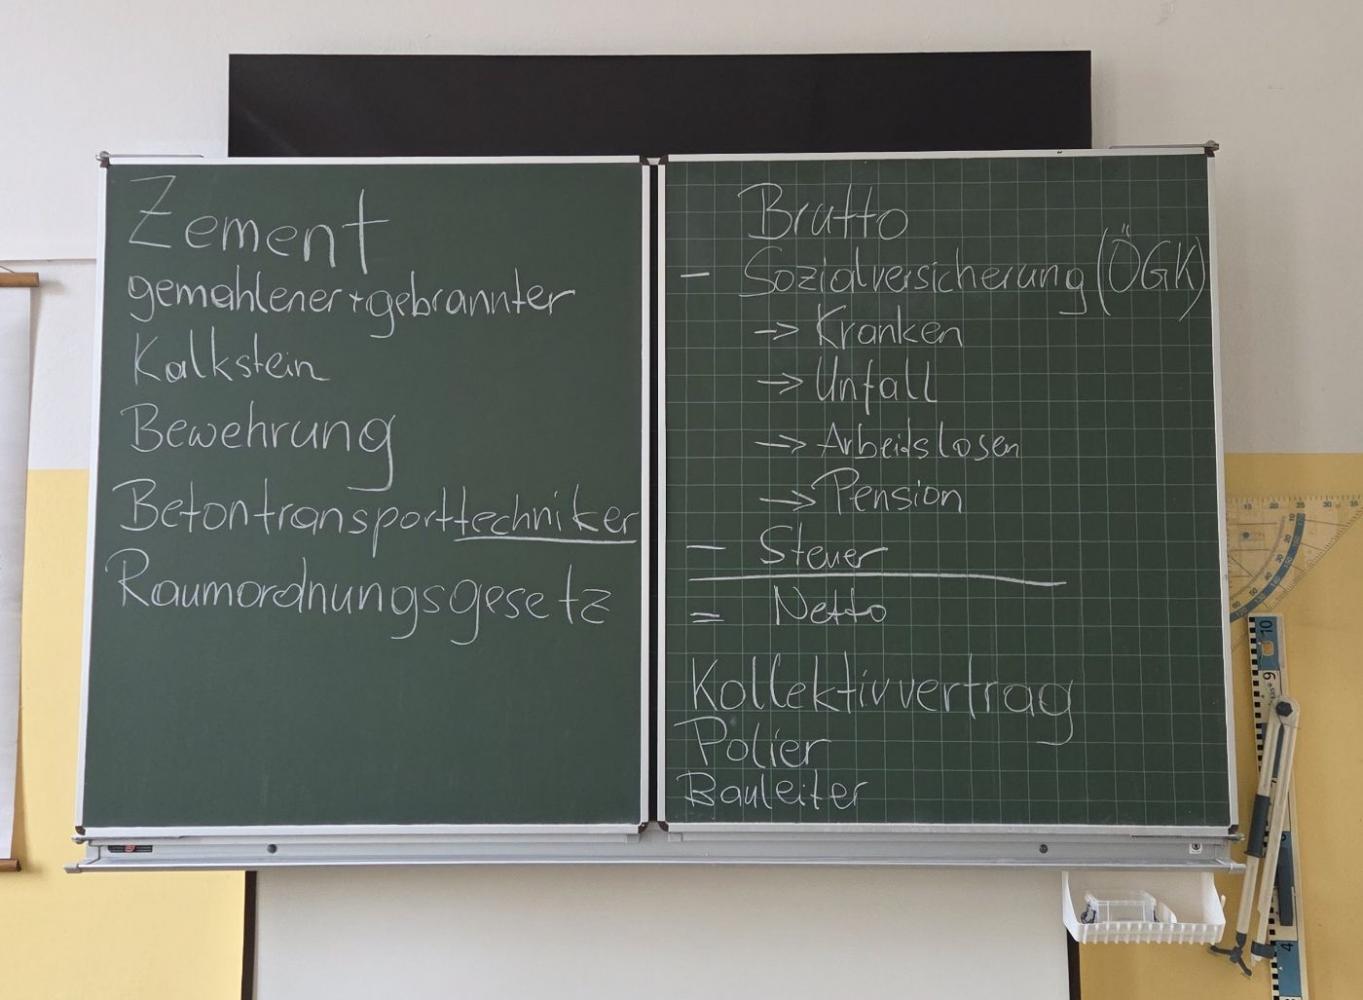 Zement
gemahlener + gebrannter
Kalkstein
Bewehrung
Betontransporttechniker
Raumordnungsgesetz
Brutto
- Sozialversicherung (ÖGK)
→ Kranken
→ Unfall
→ Arbeitslosen
→ Pension
- Steuer
= Netto
Kollektivvertrag
Polier
Bauleiter